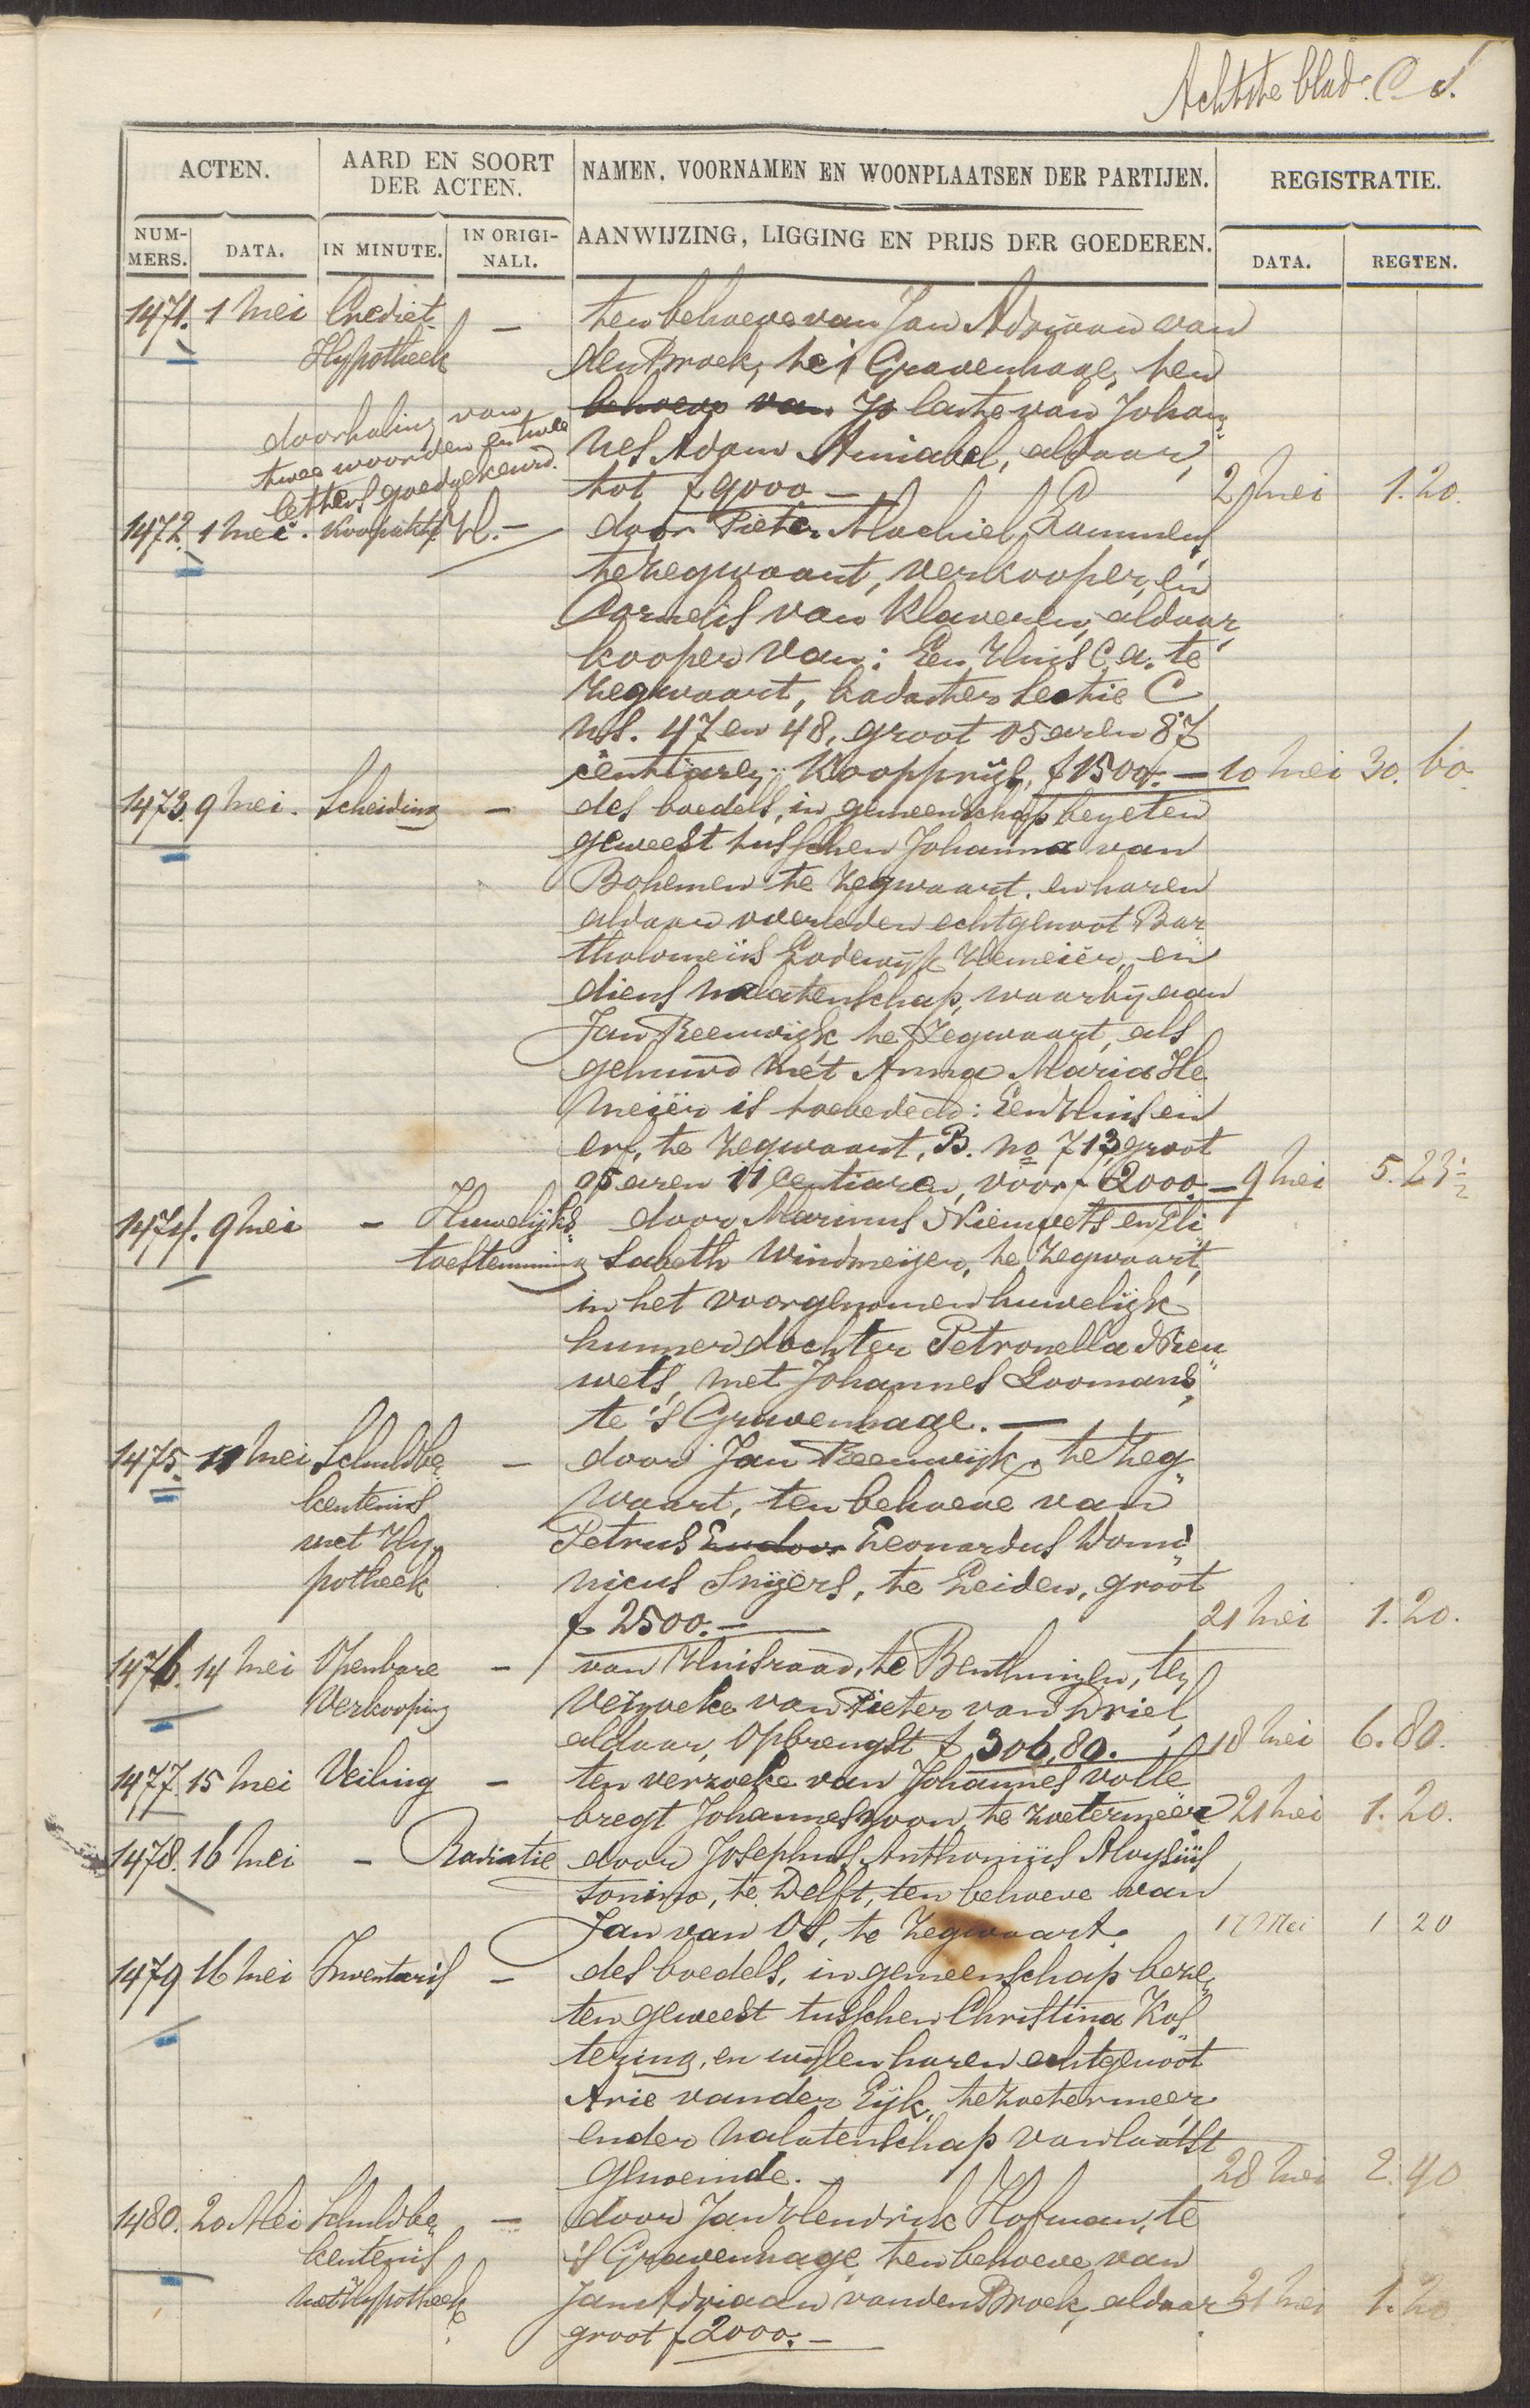 Achtste blad.
ACTEN. AARD EN SOORT DER ACTEN. NAMEN, VOORNAMEN EN WOONPLAATSEN DER PARTIJEN. REGISTRATIE.
NUM-MERS. DATA. IN MINUTE. IN ORIGI-NALI. AANWIJZING, LIGGING EN PRIJS DER GOEDEREN. DATA. REGTEN.
1471. 1 Mei Crediet - ten behoeve van Jan Adriaan van
Hypotheek den Broek, te 's Gravenhage, ten
doorhaling van behoeve van laste van Johan
twee woorden en twee nes Adam Amiabel, aldaar,
letters goedgekeurd. tot f 9000 - 2 Mei 1.20.
1472. 1 Mei. - door Pieter Machiel Lammens
te Zegwaart, verkooper, en
Cornelis van Klaveren, aldaar,
kooper van: Een Huis c.a. te
Zegwaart, kadaster Sectie C
ns. 47 en 48, groot 05 aren 87
centiaren. Koopprijs, f 1500.- 10 Mei 30.60
1473 9 Mei. Scheiding - des boedels, in gemeenschap bezeten
geweest tusschen Johanna van
Bohemen te Zegwaart. en haren
aldaar overleden echtgenoot Bar
tholomeüs Lodewijk Hemeiër, en
diens nalatenschap, waarbij aan
Jan Reeuwijk te Zegwaart, als
gehuwd met Anna Maria He
meiër is toebedeeld: Een Huis en
erf, te Zegwaart, B. no 713, groot
05 aren 11 centiaren, voor f 2000 - 9 Mei 5.23½
1474. 9 Mei - Huwelijks door Marinus Nieuwets en Eli
toestemming sabeth Windmeijer, te Zegwaart,
in het voorgenomen huwelijk
hunner dochter Petronella Nieu
wets, met Johannes Loomans,
te 's Gravenhage. -
1475 11 Mei Schuldbe - door Jan Reeuwijk, te Zeg
kentenis waart, ten behoeve van
met Hy Petrus Leonardus Domi
potheek nicus Snijërs, te Leiden, groot
f 2500.- 21 Mei 1.20.
1476. 14 Mei Openbare - van Huisraad, te Benthuizen, ten
Verkooping verzoeke van Pieter van Driel,
aldaar, Opbrengst f 306,80. 18 Mei 6.80.
1477. 15 Mei Veiling - ten verzoeke van Johannes Volle
bregt Johanneszoon, te Zoetermeer 21 Mei 1.20.
1478. 16 Mei - Radiatie door Josephus Anthoniüs Aloysiüs
Tonino, te Delft, ten behoeve van
Jan van Os, te Zegwaart. 17 Mei 1 20
1479 16 Mei Inventaris - des boedels, in gemeenschap beze
ten geweest tusschen Christina Kos
tering, en wijlen haren echtgenoot
Arie van der Eijk, te Zoetermeer
en der nalatenschap van laatst
genoemde. - 28 Mei 2.40
1480. 20 Mei Schuldbe - door Jan Hendrik Hofman, te
kentenis 's Gravenhage, ten behoeve van
met Hypotheek Jan Adriaan van den Broek, aldaar 31 Mei 1.20
groot f 2000.-